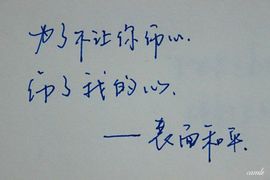 为了不让你伤心.
伤了我的心.
——表面和平.
camile